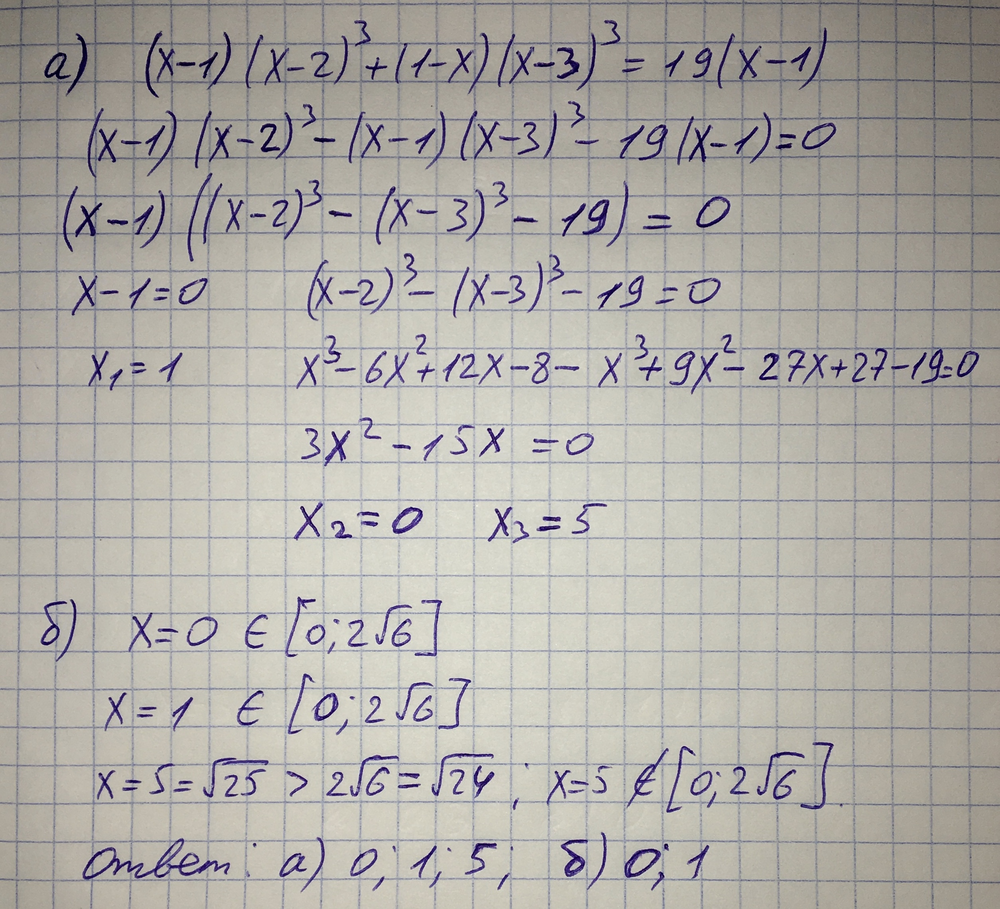 а) (x-1)(x-2)³+(1-x)(x-3)³=19(x-1)
(x-1)(x-2)³-(x-1)(x-3)³-19(x-1)=0
(x-1)((x-2)³-(x-3)³-19)=0
x-1=0 (x-2)³-(x-3)³-19=0
x₁=1 x³-6x²+12x-8-x³+9x²-27x+27-19=0
3x²-15x=0
x₂=0 x₃=5
б) x=0 ∈ [0;2√6]
x=1 ∈ [0;2√6]
x=5=√25 > 2√6=√24; x=5 ∉ [0;2√6].
Ответ: а) 0; 1; 5; б) 0; 1